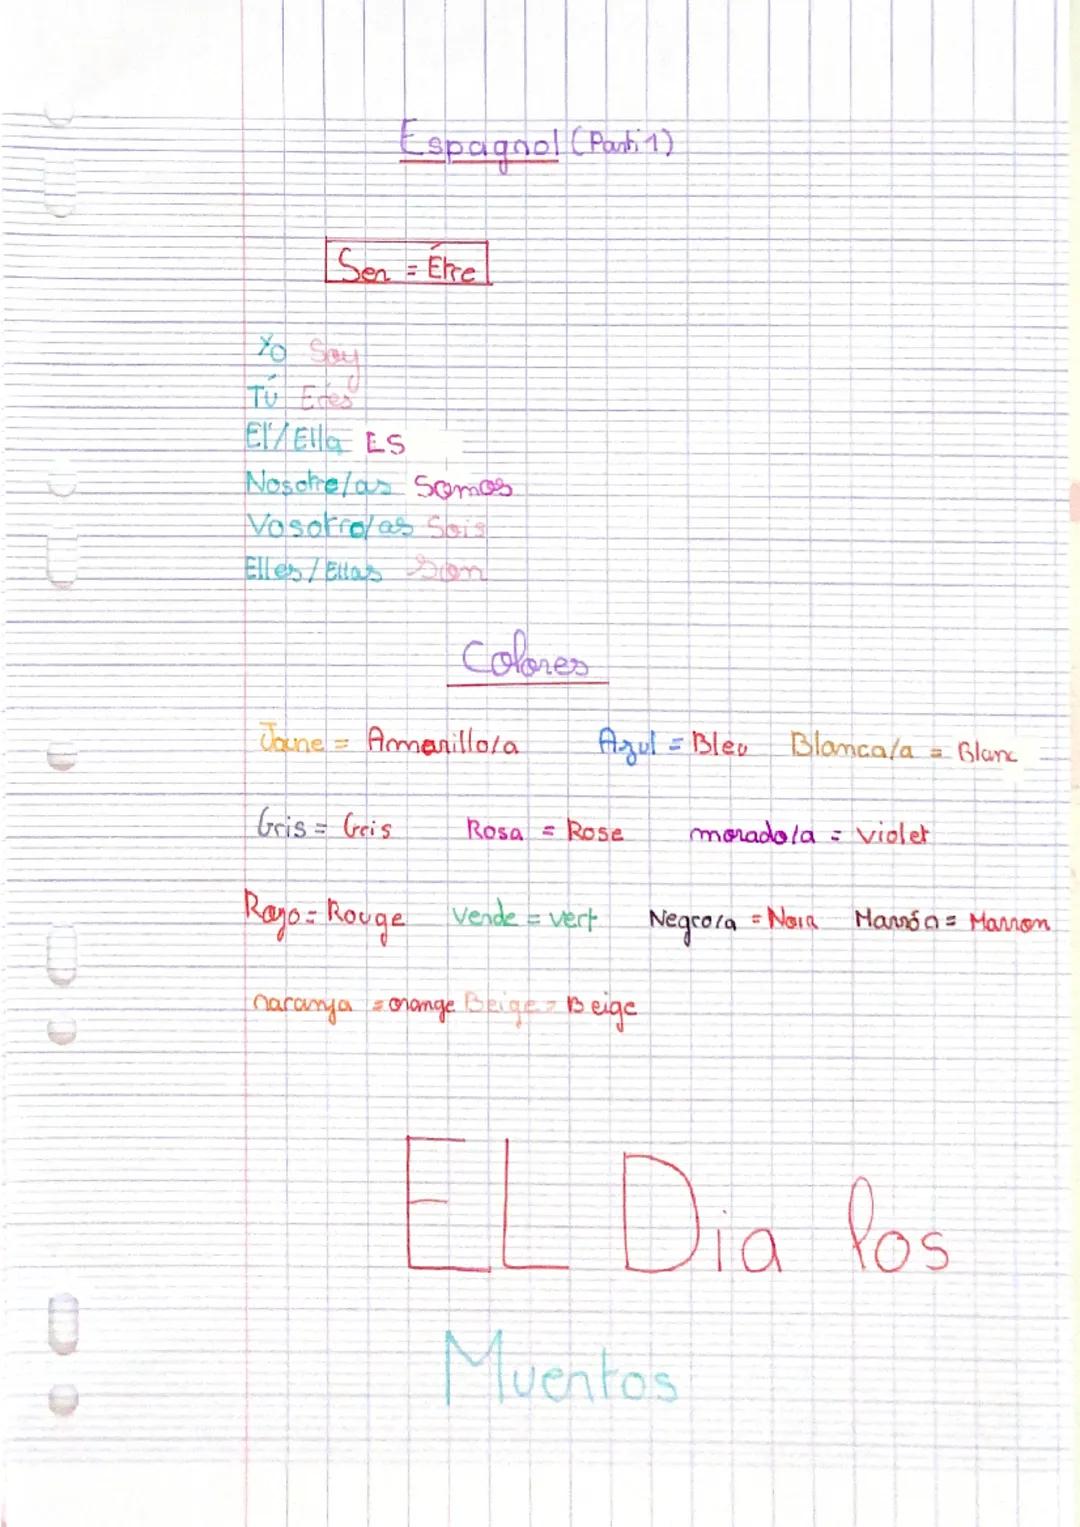 Espagnol (Parti 1)
Ser = Étre
Yo Soy
Tú Eres
El'/Ella ES
Nosotro/as Somos
Vosotro/as Sois
Elles/Ellas Son
Colores
Jaune = Amarillo/a Azul = Bleu Blanca/a = Blanc
Gris = Gris Rosa = Rose morado/a = violet
Rojo = Rouge Verde = vert Negro/a = Noir Marrón = Marron
naranja = orange Beige = Beige
EL Dia los
Muertos